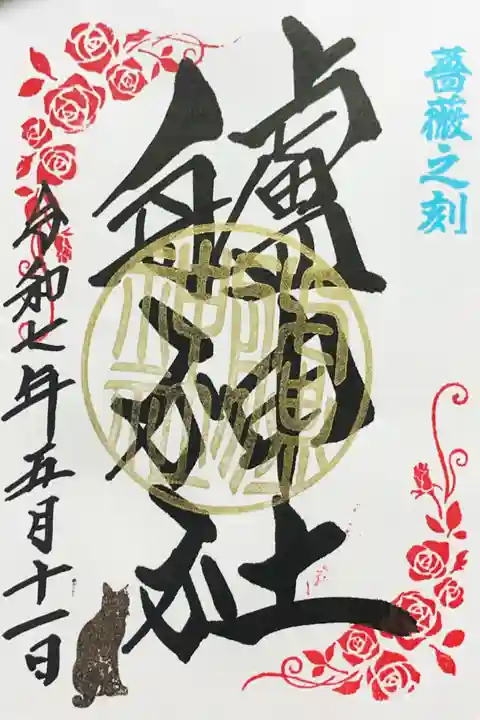 薔薇之刻
鱸神社
令和七年五月十一日